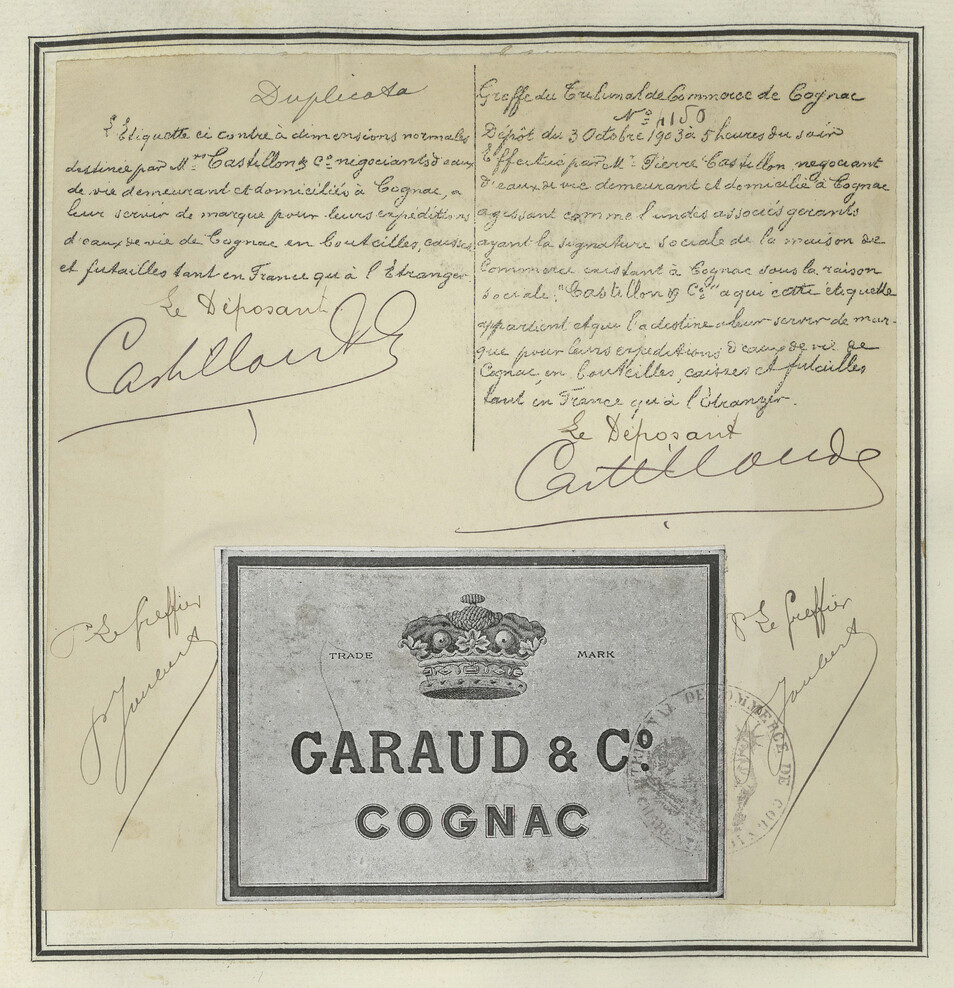 Duplicata
L'Etiquette ci contre à dimensions normales
destinée par Mrs Castillon & Co négociants d'eaux
de vie demeurant et domiciliés à Cognac, a
leur servir de marque pour leurs expéditions
d'eaux de vie de Cognac en bouteilles, caisses
et futailles tant en France qu'à l'Etranger.
Le Déposant
Castillon & Co
Greffe du Tribunal de Commerce de Cognac
No 4150
Dépôt du 3 Octobre 1903 à 5 heures du soir
Effectué par Mr Pierre Castillon négociant
d'eaux de vie demeurant et domicilié à Cognac
agissant comme l'un des associés gerants
ayant la signature sociale de la maison de
Commerce existant à Cognac sous la raison
sociale, "Castillon & Co" a qui cette étiquette
appartient et qui l'a destine a leur servir de mar-
que pour leurs expéditions d'eaux de vie de
Cognac, en bouteilles, caisses et futailles
tant en France qu'à l'Etranger.
Le Déposant
Castillon & Co
Pr Le Greffier
Joubert
TRADE MARK
GARAUD & Co.
COGNAC
Pr Le Greffier
Joubert
TRIBUNAL DE COMMERCE DE COGNAC